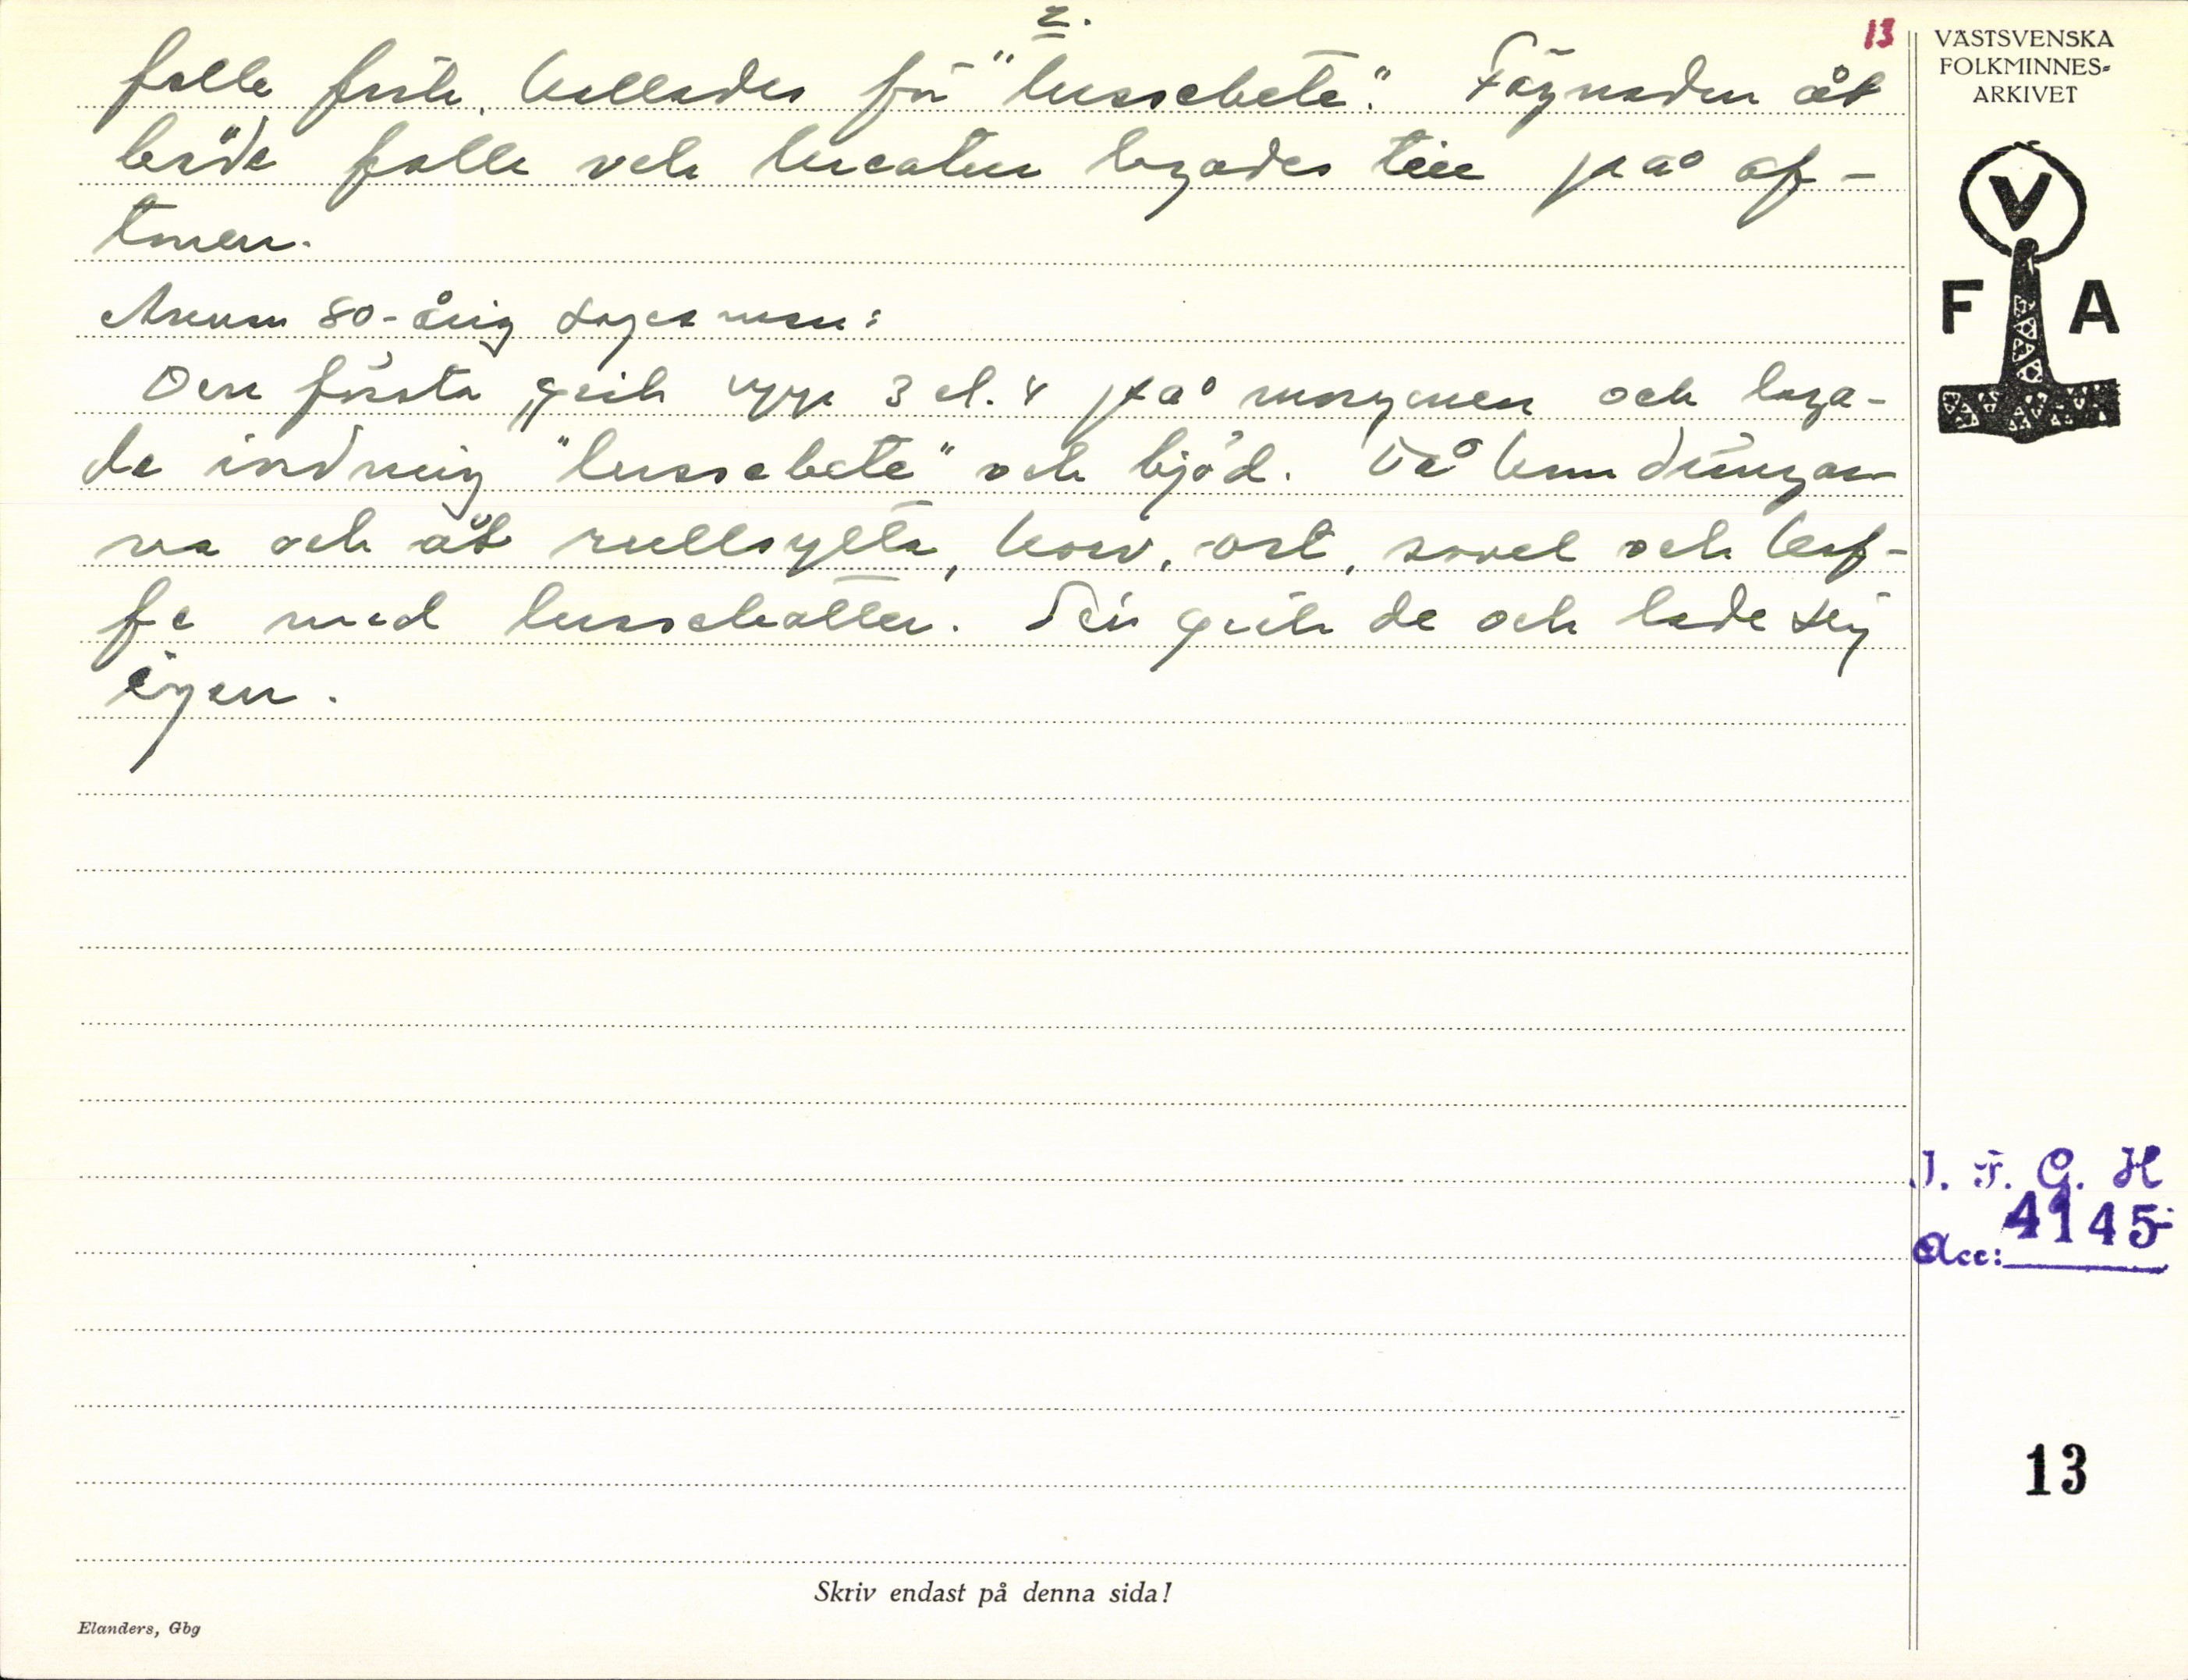 2.
13
folk fick, kallades för "lussebete". Fägnaden åt
både folk och kreatur lagades till på af-
tonen.
Annan 80-årig sagesman:
Den första gick upp 3 el. 4 på morgonen och laga-
de ordning "lussebete" och bjöd. Då kom drängar-
na och åt rullsylta, korv, ost, sovel och kaf-
fe med lussekatter. Sen gick de och lade sig
igen.
VÄSTSVENSKA
FOLKMINNES-
ARKIVET
V
F A
I. F. G. H
Acc: 4145
13
Skriv endast på denna sida!
Elanders, Gbg